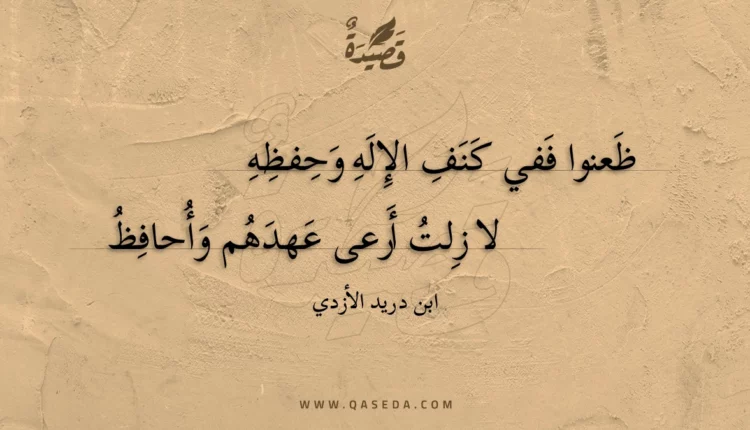 قَصِيْدَةٌ
ظَعنوا فَفي كَنَفِ الإِلَهِ وَحِفظِهِ
لا زِلتُ أَرعى عَهدَهُم وَأُحافِظُ
ابن دريد الأزدي
WWW.QASEDA.COM